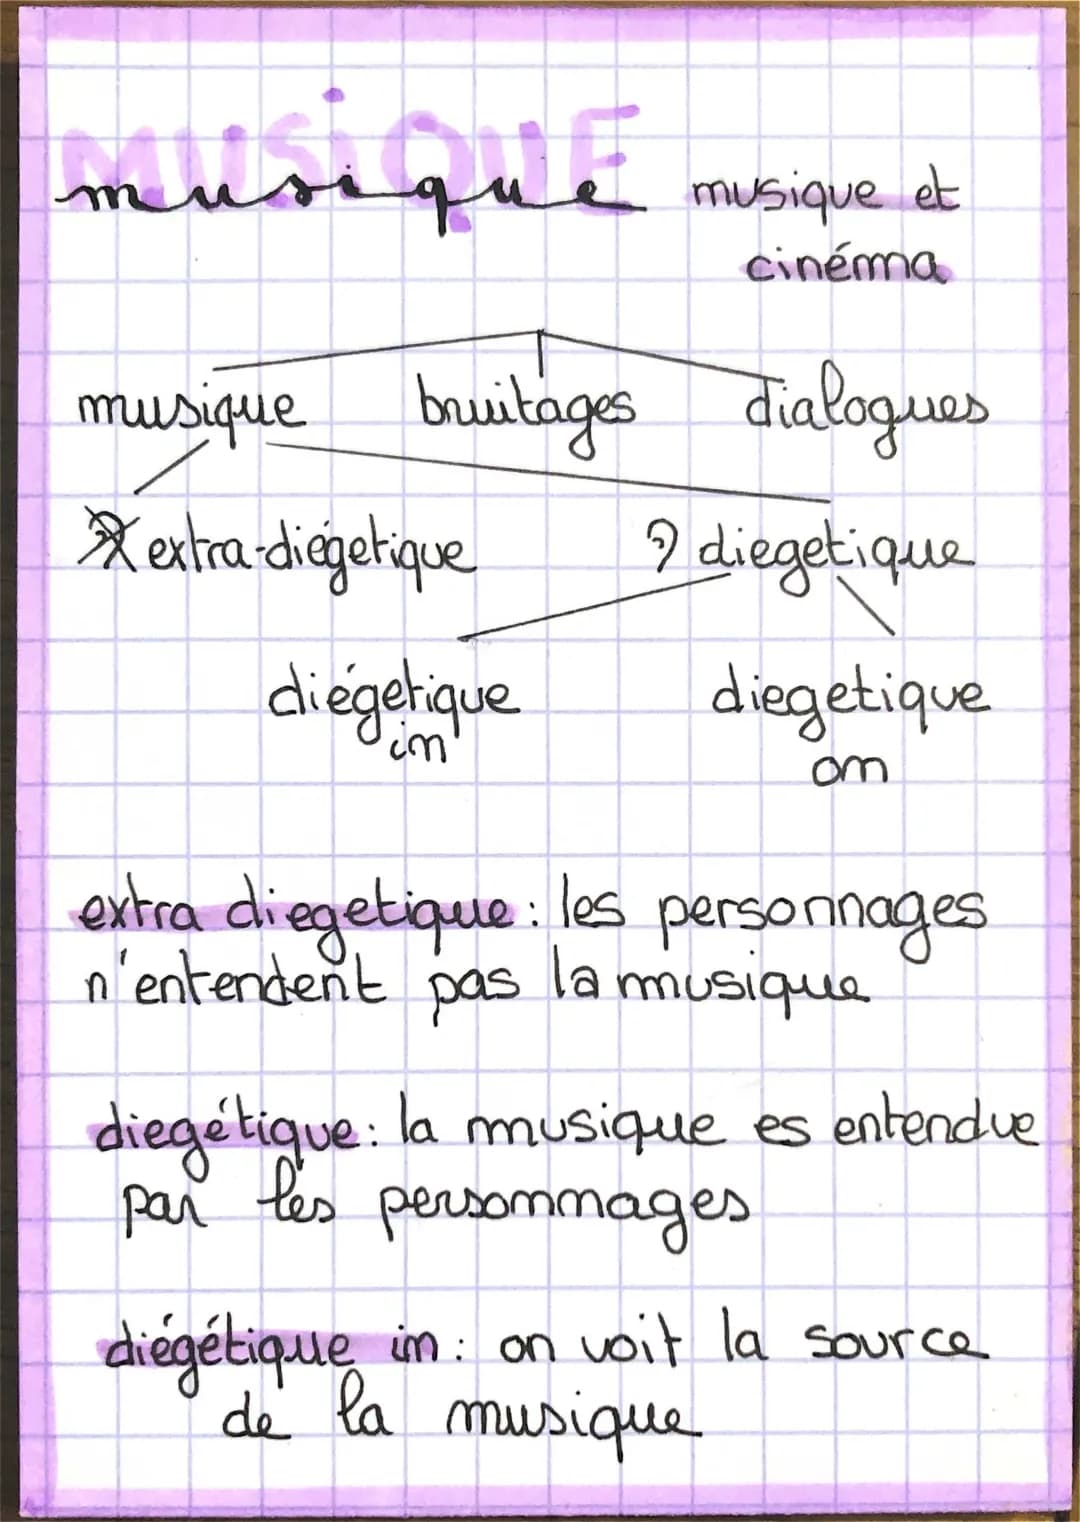 MUSiQUE
musique
musique et
cinéma
musique bruitages dialogues
extra-diégetique diegetique
diégetique diegetique
in om
extra diegetique : les personnages
n'entendent pas la musique
diegétique : la musique es entendue
par les personmages
diégétique in : on voit la source
de la musique